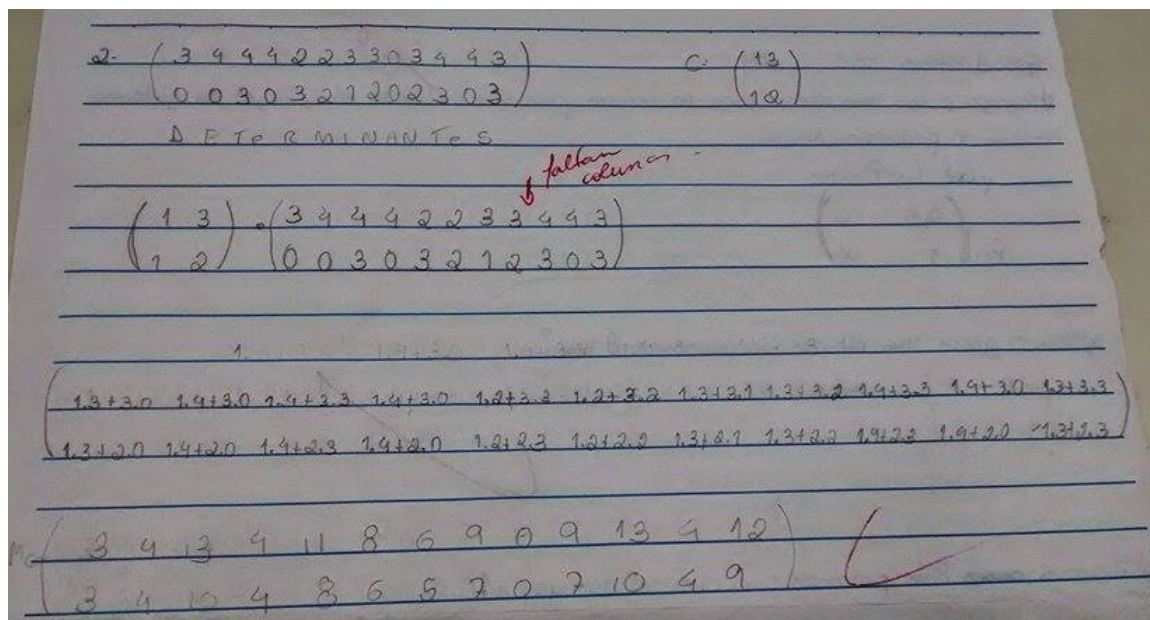 2. ( 3 4 4 4 2 2 3 3 0 3 4 4 3 ) C: ( 1 3 )
( 0 0 3 0 3 2 1 2 0 2 3 0 3 ) ( 1 2 )
D E T e R M I N A N T e S
faltan
colunas
( 1 3 ) . ( 3 4 4 4 2 2 3 3 4 4 3 )
( 1 2 ) ( 0 0 3 0 3 2 1 2 3 0 3 )
1.
1.3+3.0 1.4+3.0 1.4+3.3 1.4+3.0 1.2+3.3 1.2+3.2 1.3+3.1 1.3+3.2 1.4+3.3 1.4+3.0 1.3+3.3
1.3+2.0 1.4+2.0 1.4+2.3 1.4+2.0 1.2+2.3 1.2+2.2 1.3+2.1 1.3+2.2 1.4+2.3 1.4+2.0 1.3+2.3
( 3 4 13 4 11 8 6 9 0 9 13 4 12 )
( 3 4 10 4 8 6 5 7 0 7 10 4 9 )